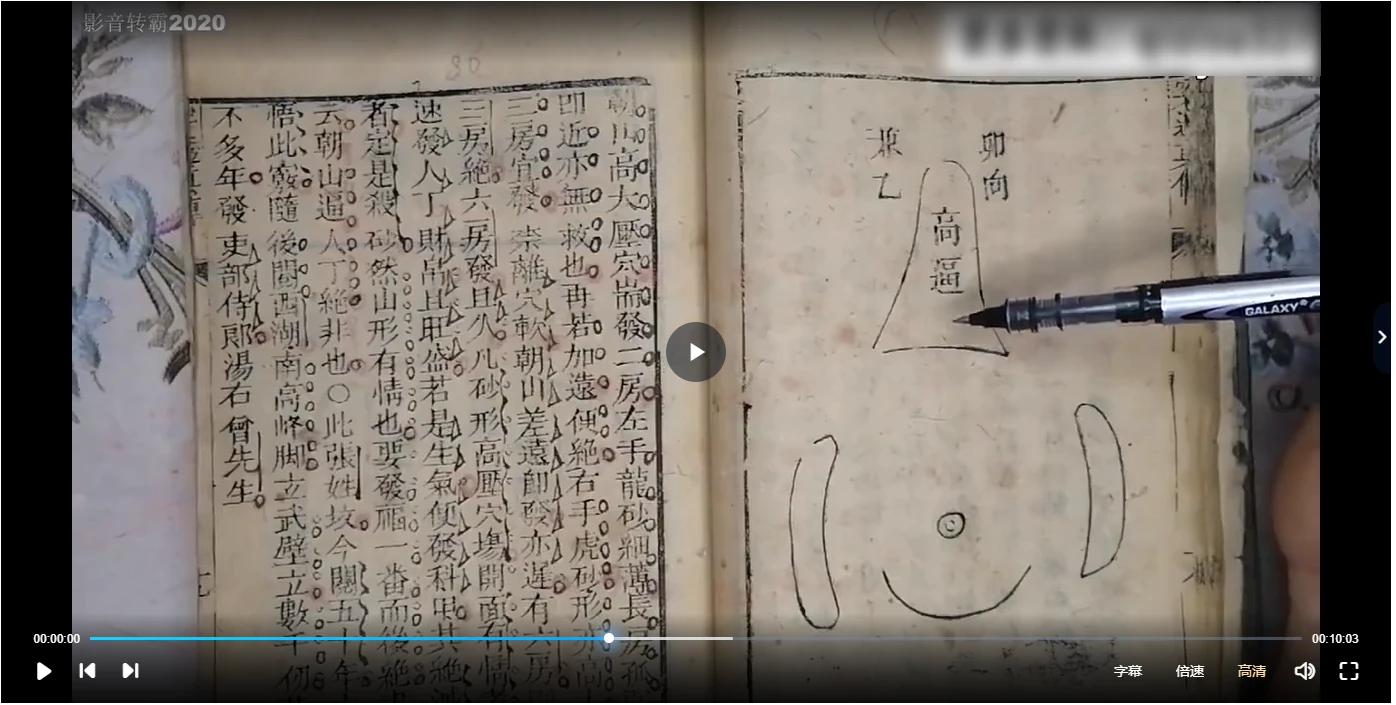 影音转霸2020
30
卯向
兼乙
高逼
GALAXY
朝山高大壓穴耑發二房左手龍砂細薄長房孤
即近亦無救也再若加遠便絕右手虎砂形亦高
三房宜發崇離穴軟朝山差遠卽發亦遲有六房
三房絕六房發且久凡砂形高壓穴場開面有情
速發人丁財帛且旺盛若是生氣便發科甲其絕
者定是殺砂然山形有情也要發福一番而後絕
云朝山逼人丁絕非也○此張姓坟今關五十年
悟此竅隨後閱西湖南高峰脚立武壁立數千仞
不多年發吏部侍郎湯右曾先生
00:00:00
00:10:03
字幕
倍速
高清